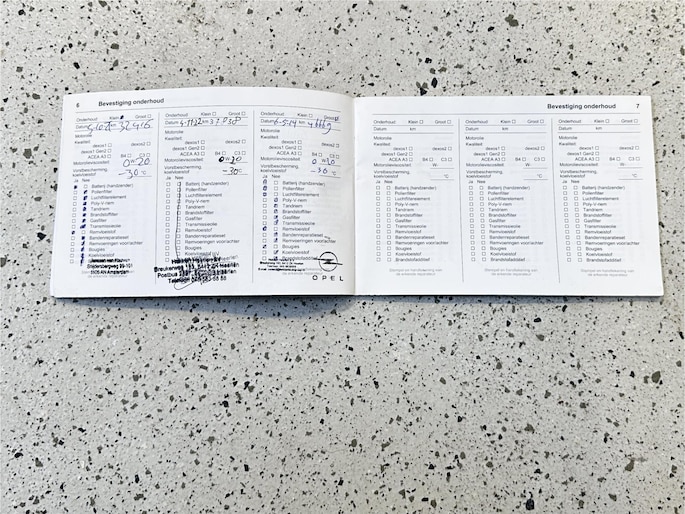 6 Bevestiging onderhoud
Onderhoud Klein Groot
Datum 32416
Motorolie
Kwaliteit
dexos1 dexos2
dexos1 Gen2
ACEA A3 B4 C3
Motorolieviscositeit 0W-20
Vorstbescherming, koelvloeistof -30 °C
Ja Nee
Batterij (handzender)
Pollenfilter
Luchtfilterelement
Poly-V-riem
Tandriem
Brandstoffilter
Gasfilter
Transmissieolie
Remvloeistof
Bandenreparatieset
Remvoeringen voor/achter
Bougies
Koelvloeistof
Brandstofadditief
Amsterdam
Onderhoud Klein Groot
Datum km 37038
Motorolie
Kwaliteit
dexos1 dexos2
dexos1 Gen2
ACEA A3 B4 C3
Motorolieviscositeit
Vorstbescherming, koelvloeistof -30°C
Ja Nee
Batterij (handzender)
Pollenfilter
Luchtfilterelement
Poly-V-riem
Tandriem
Brandstoffilter
Gasfilter
Transmissieolie
Remvloeistof
Bandenreparatieset
Remvoeringen voor/achter
Bougies
Koelvloeistof
Postbus
Telefoon
Onderhoud Klein Groot
Datum km
Motorolie
Kwaliteit
dexos1 dexos2
dexos1 Gen2
ACEA A3 B4 C3
Motorolieviscositeit
Vorstbescherming, koelvloeistof -30 °C
Ja Nee
Batterij (handzender)
Pollenfilter
Luchtfilterelement
Poly-V-riem
Tandriem
Brandstoffilter
Gasfilter
Transmissieolie
Remvloeistof
Bandenreparatieset
Remvoeringen voor/achter
Bougies
Koelvloeistof
Brandstofadditief
OPEL
Bevestiging onderhoud 7
Onderhoud Klein Groot
Datum km
Motorolie
Kwaliteit
dexos1 dexos2
dexos1 Gen2
ACEA A3 B4 C3
Motorolieviscositeit W-
Vorstbescherming, koelvloeistof °C
Ja Nee
Batterij (handzender)
Pollenfilter
Luchtfilterelement
Poly-V-riem
Tandriem
Brandstoffilter
Gasfilter
Transmissieolie
Remvloeistof
Bandenreparatieset
Remvoeringen voor/achter
Bougies
Koelvloeistof
Brandstofadditief
Stempel en handtekening van
de erkende reparateur
Onderhoud Klein Groot
Datum km
Motorolie
Kwaliteit
dexos1 dexos2
dexos1 Gen2
ACEA A3 B4 C3
Motorolieviscositeit W-
Vorstbescherming, koelvloeistof °C
Ja Nee
Batterij (handzender)
Pollenfilter
Luchtfilterelement
Poly-V-riem
Tandriem
Brandstoffilter
Gasfilter
Transmissieolie
Remvloeistof
Bandenreparatieset
Remvoeringen voor/achter
Bougies
Koelvloeistof
Brandstofadditief
Stempel en handtekening van
de erkende reparateur
Onderhoud Klein Groot
Datum km
Motorolie
Kwaliteit
dexos1 dexos2
dexos1 Gen2
ACEA A3 B4 C3
Motorolieviscositeit W-
Vorstbescherming, koelvloeistof °C
Ja Nee
Batterij (handzender)
Pollenfilter
Luchtfilterelement
Poly-V-riem
Tandriem
Brandstoffilter
Gasfilter
Transmissieolie
Remvloeistof
Bandenreparatieset
Remvoeringen voor/achter
Bougies
Koelvloeistof
Brandstofadditief
Stempel en handtekening van
de erkende reparateur